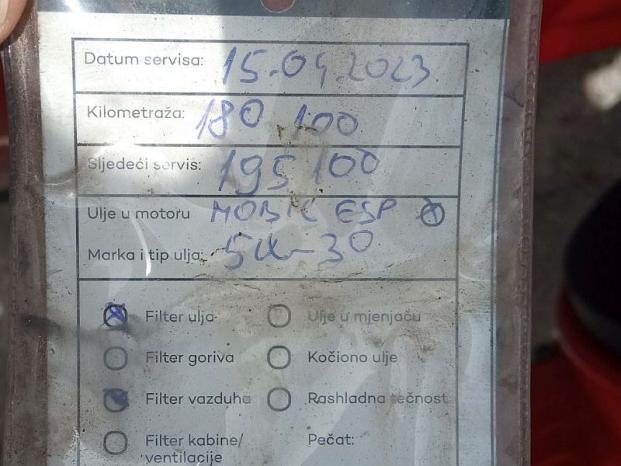 Datum servisa: 15.04.2023
Kilometraža: 180 100
Sljedeći servis: 195 100
Ulje u motoru MOBIL ESP
Marka i tip ulja: 5W-30
Filter ulja Ulje u mjenjaču
Filter goriva Kočiono ulje
Filter vazduha Rashladna tečnost
Filter kabine/ Pečat:
ventilacije